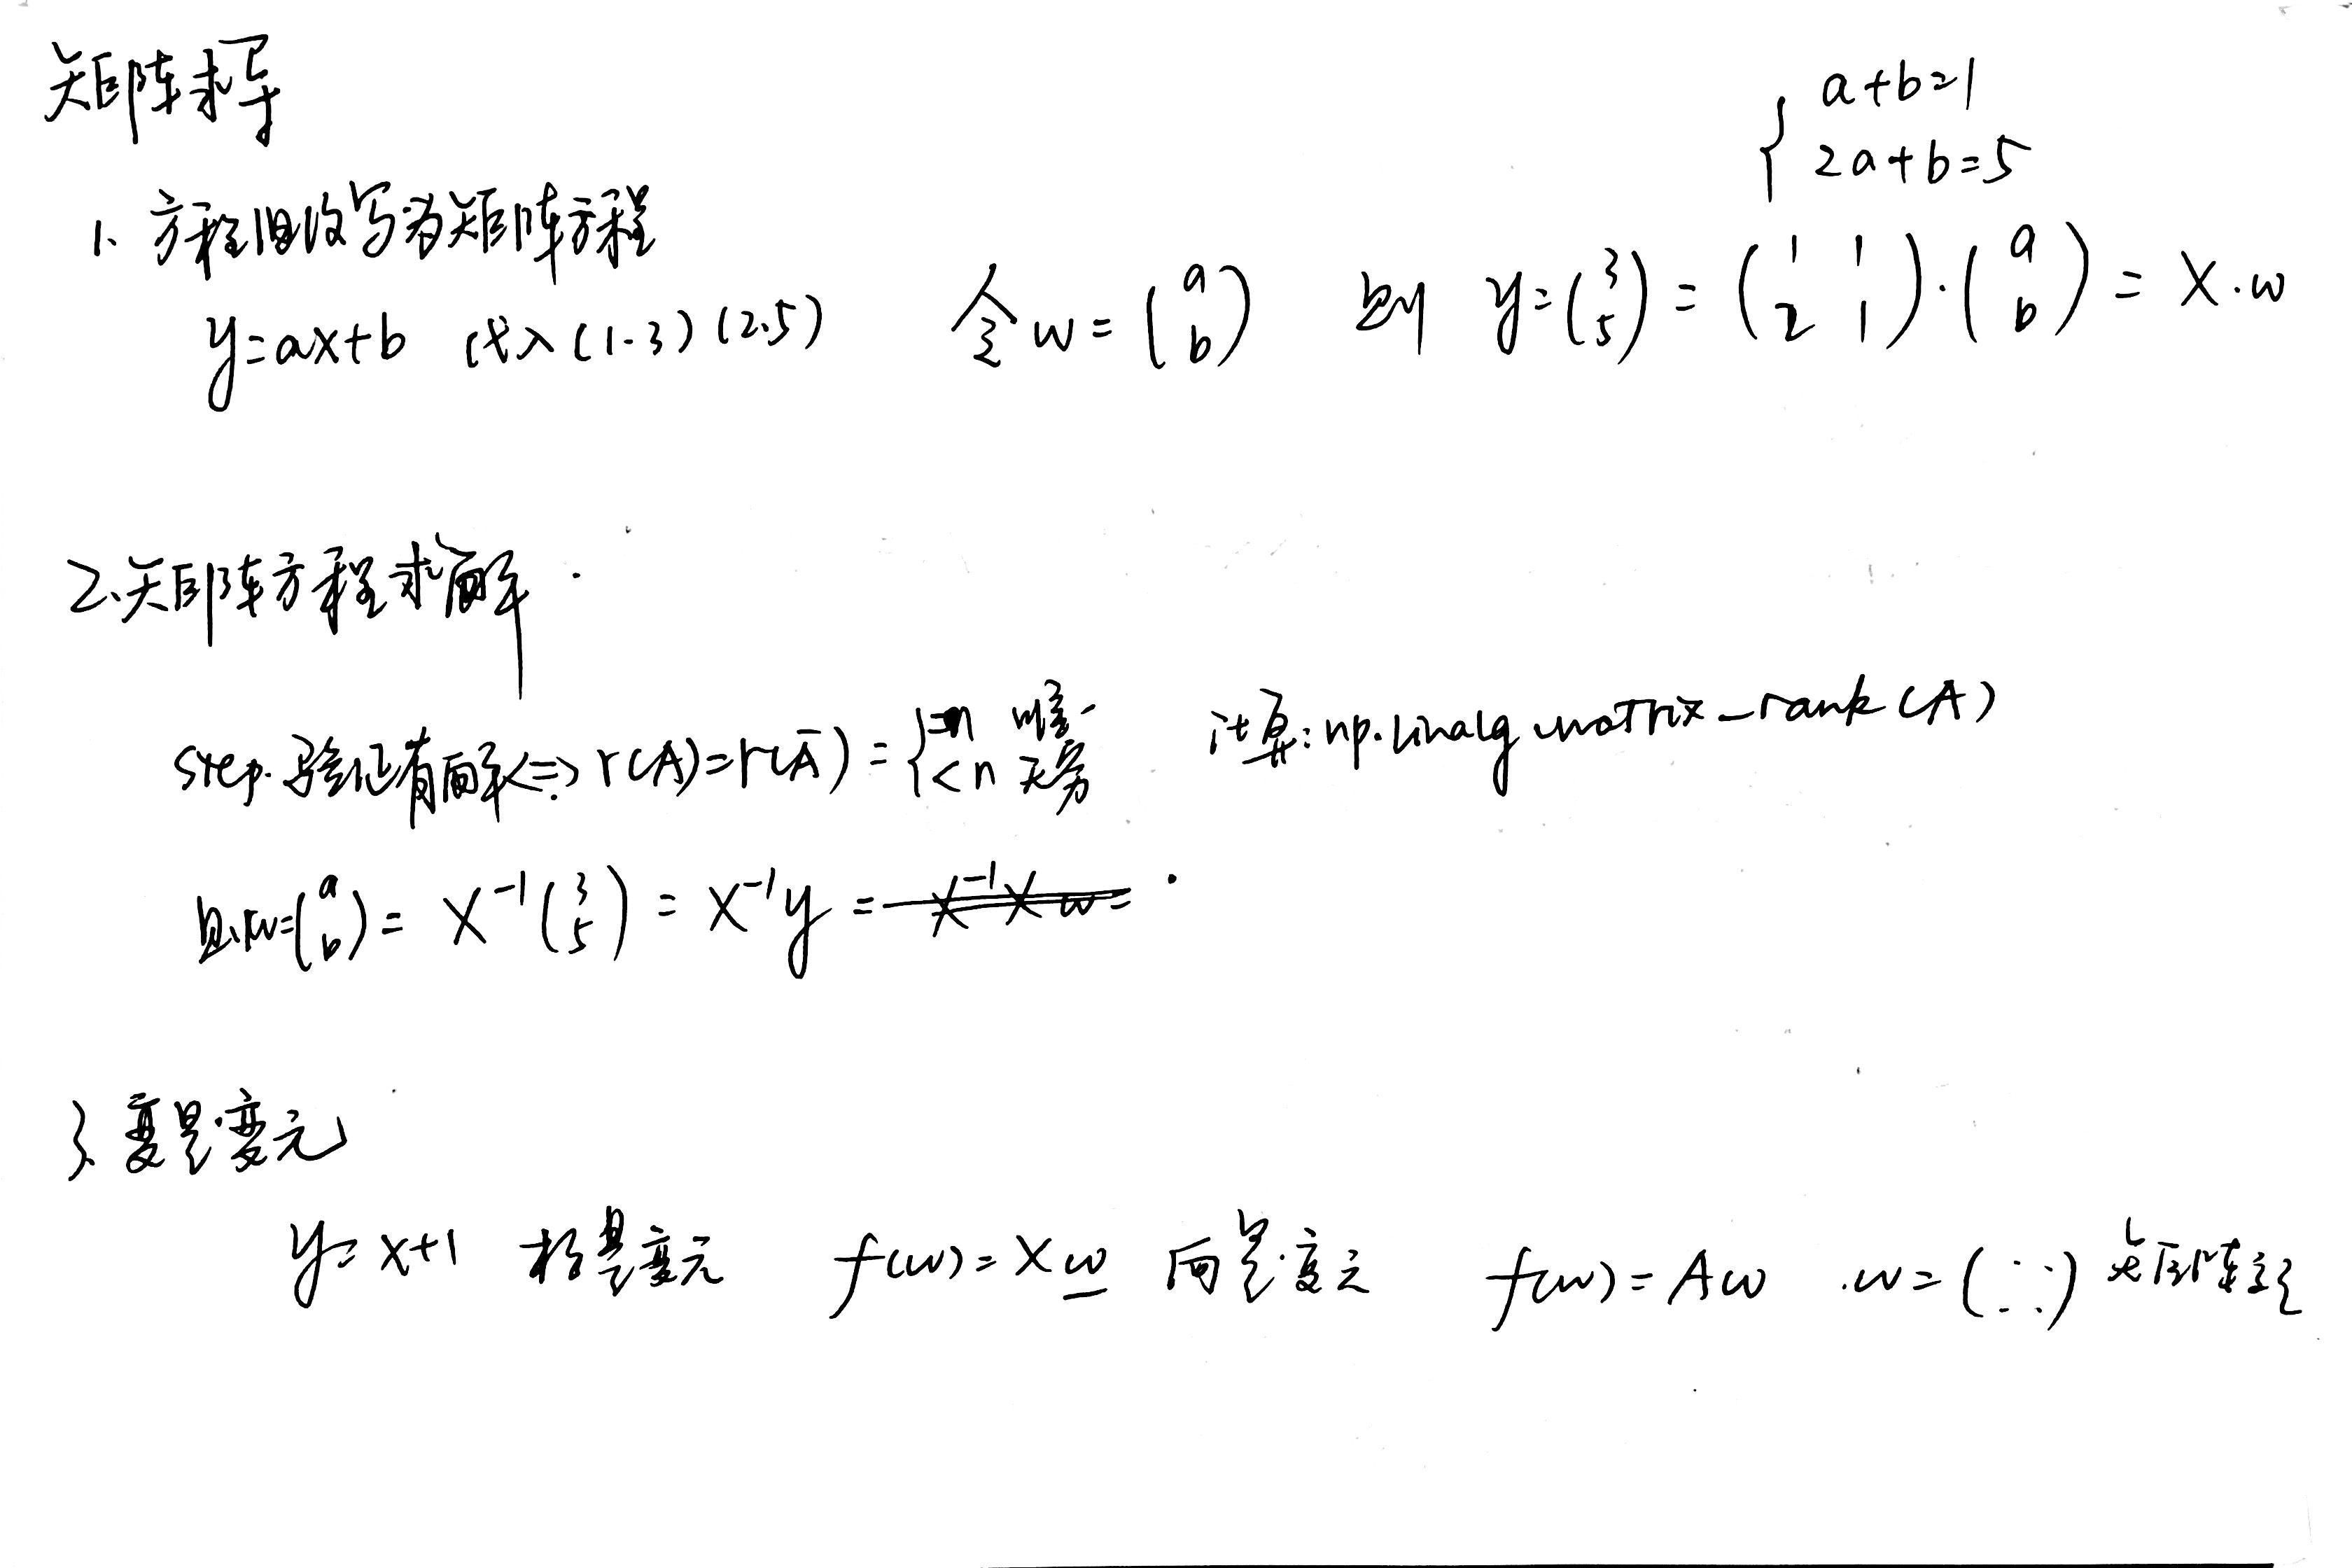 矩阵求导
{ a+b=1
2a+b=5
1、方程组改写为矩阵方程
y=ax+b 代入(1.3)(2.5) 令w=(a b) 则 y=(3 5)=(1 1 2 1)·(a b)=X·w
2、矩阵方程求解
step. 验证有解<=>r(A)=r(Ā)={=n 唯一 <n 无穷 计算:np.linalg matrix_rank(A)
则w=(a b)=X⁻¹(3 5)=X⁻¹y=
3、变量变元
y=x+1 标量变元 f(w)=Xw 向量变元 f(w)=Aw .w=(::) 矩阵变